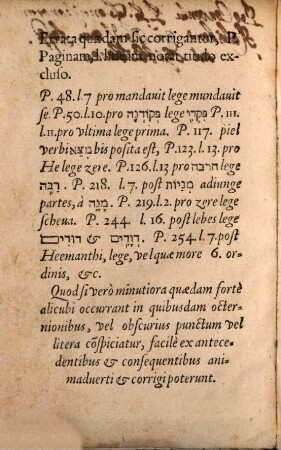 Errata quædam sic corrigantor, P.
Paginam, l. lineam notat titulo ex-
cluso.
P. 48. l. 7 pro mandauit lege mundauit
se P. 50. l. 10. pro פקודנה lege פקדי P. 111.
l. 11. pro vltima lege prima. P. 117. piel
verbi מצא bis posita est, P. 123. l. 13. pro
He lege zere. P. 126. l. 13 pro חרבה lege
רבה P. 218. l. 7. post מניות adiunge
partes, à מנה P. 219. l. 2. pro zere lege
scheua. P. 244. l. 16. post lebes lege
דודים & דודים P. 254. l. 7. post
Heemanthi, lege, vel quæ more 6. or-
dinis, &c.
Quod si verò minutiora quædam fortè
alicubi occurrant in quibusdam octer-
nionibus, vel obscurius punctum vel
litera cōspiciatur, facilè ex antece-
dentibus & consequentibus ani-
maduerti & corrigi poterunt.